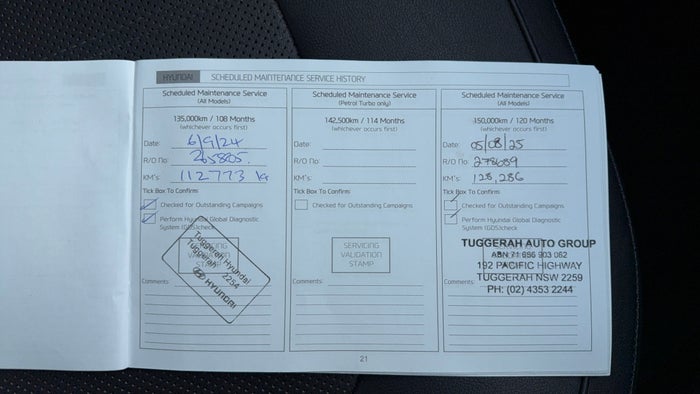 HYUNDAI SCHEDULED MAINTENANCE SERVICE HISTORY
Scheduled Maintenance Service
(All Models)
135,000km / 108 Months
(whichever occurs first)
Date: 6/9/24
R/O No: 265805.
KM's: 112773 K
Tick Box To Confirm:
Checked for Outstanding Campaigns
Perform Hyundai Global Diagnostic
System (GDS)check
SERVICING
VALIDATION
STAMP
Tuggerah Hyundai
Tuggerah 2254
HYUNDAI
Comments:
Scheduled Maintenance Service
(Petrol Turbo only)
142,500km / 114 Months
(whichever occurs first)
Date:
R/O No:
KM's:
Tick Box To Confirm:
Checked for Outstanding Campaigns
SERVICING
VALIDATION
STAMP
Comments:
Scheduled Maintenance Service
(All Models)
150,000km / 120 Months
(whichever occurs first)
Date: 05/08/25
R/O No: 278689
KM's: 128,286
Tick Box To Confirm:
Checked for Outstanding Campaigns
Perform Hyundai Global Diagnostic
System (GDS)check
TUGGERAH AUTO GROUP
ABN 71 656 903 062
192 PACIFIC HIGHWAY
TUGGERAH NSW 2259
PH: (02) 4353 2244
Comments:
21